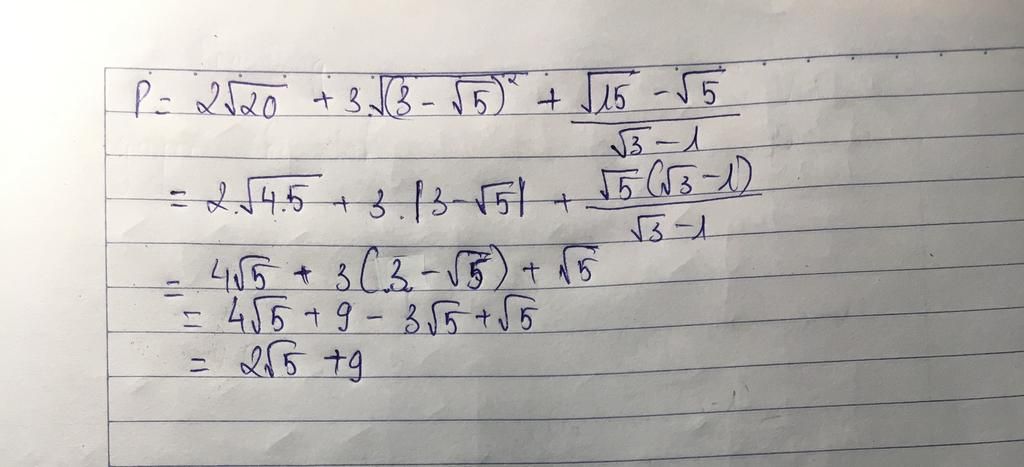 P = 2√20 + 3.√(3 - √5)² + (√15 - √5)/(√3 - 1)
= 2.√4.5 + 3.|3-√5| + √5(√3-1)/(√3-1)
= 4√5 + 3(3-√5) + √5
= 4√5 + 9 - 3√5 + √5
= 2√5 + 9